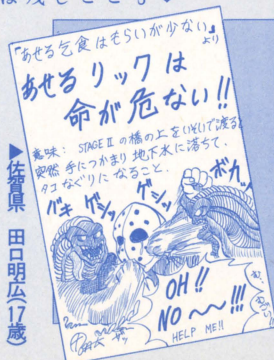 『あせる乞食はもらいが少ない』より
あせるリックは
命が危ない!!
意味: STAGEⅡの橋の上をいそいで渡ると
突然手につかまり地下水に落ちて、
タコなぐりになること。
グキ
ゲシッ
ゲシッ
ボカッ
OH!!
NO〜〜!!!
HELP ME!!
▶佐賀県 田口明広(17歳)